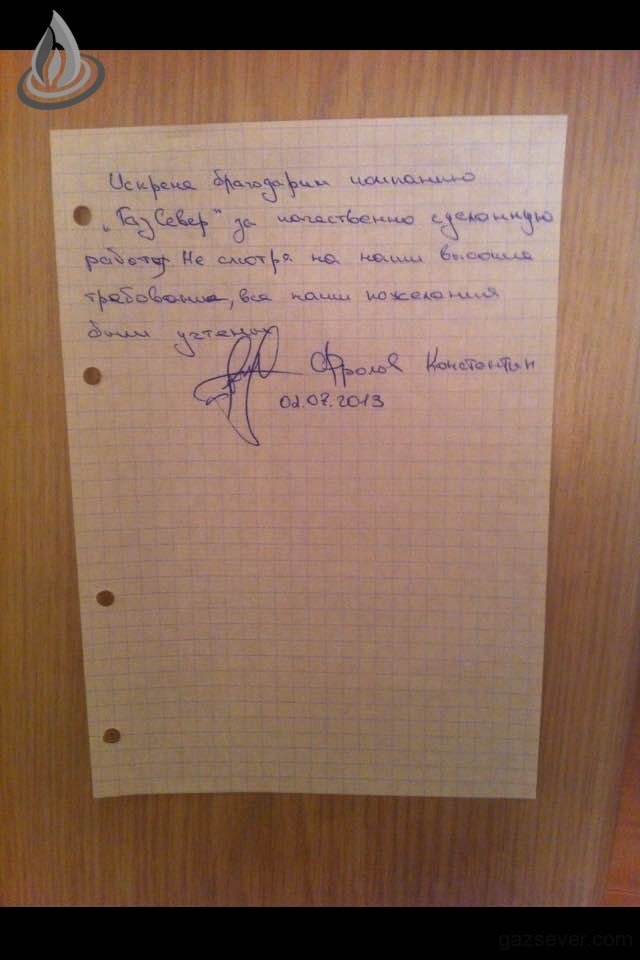 Искрене благодарим компанию
„ГазСевер" за качественно сделанную
работу. Не смотря на наши высокие
требование, все наши пожелания
были учтены.
Фролов Константин
02.07.2013
gazsever.com